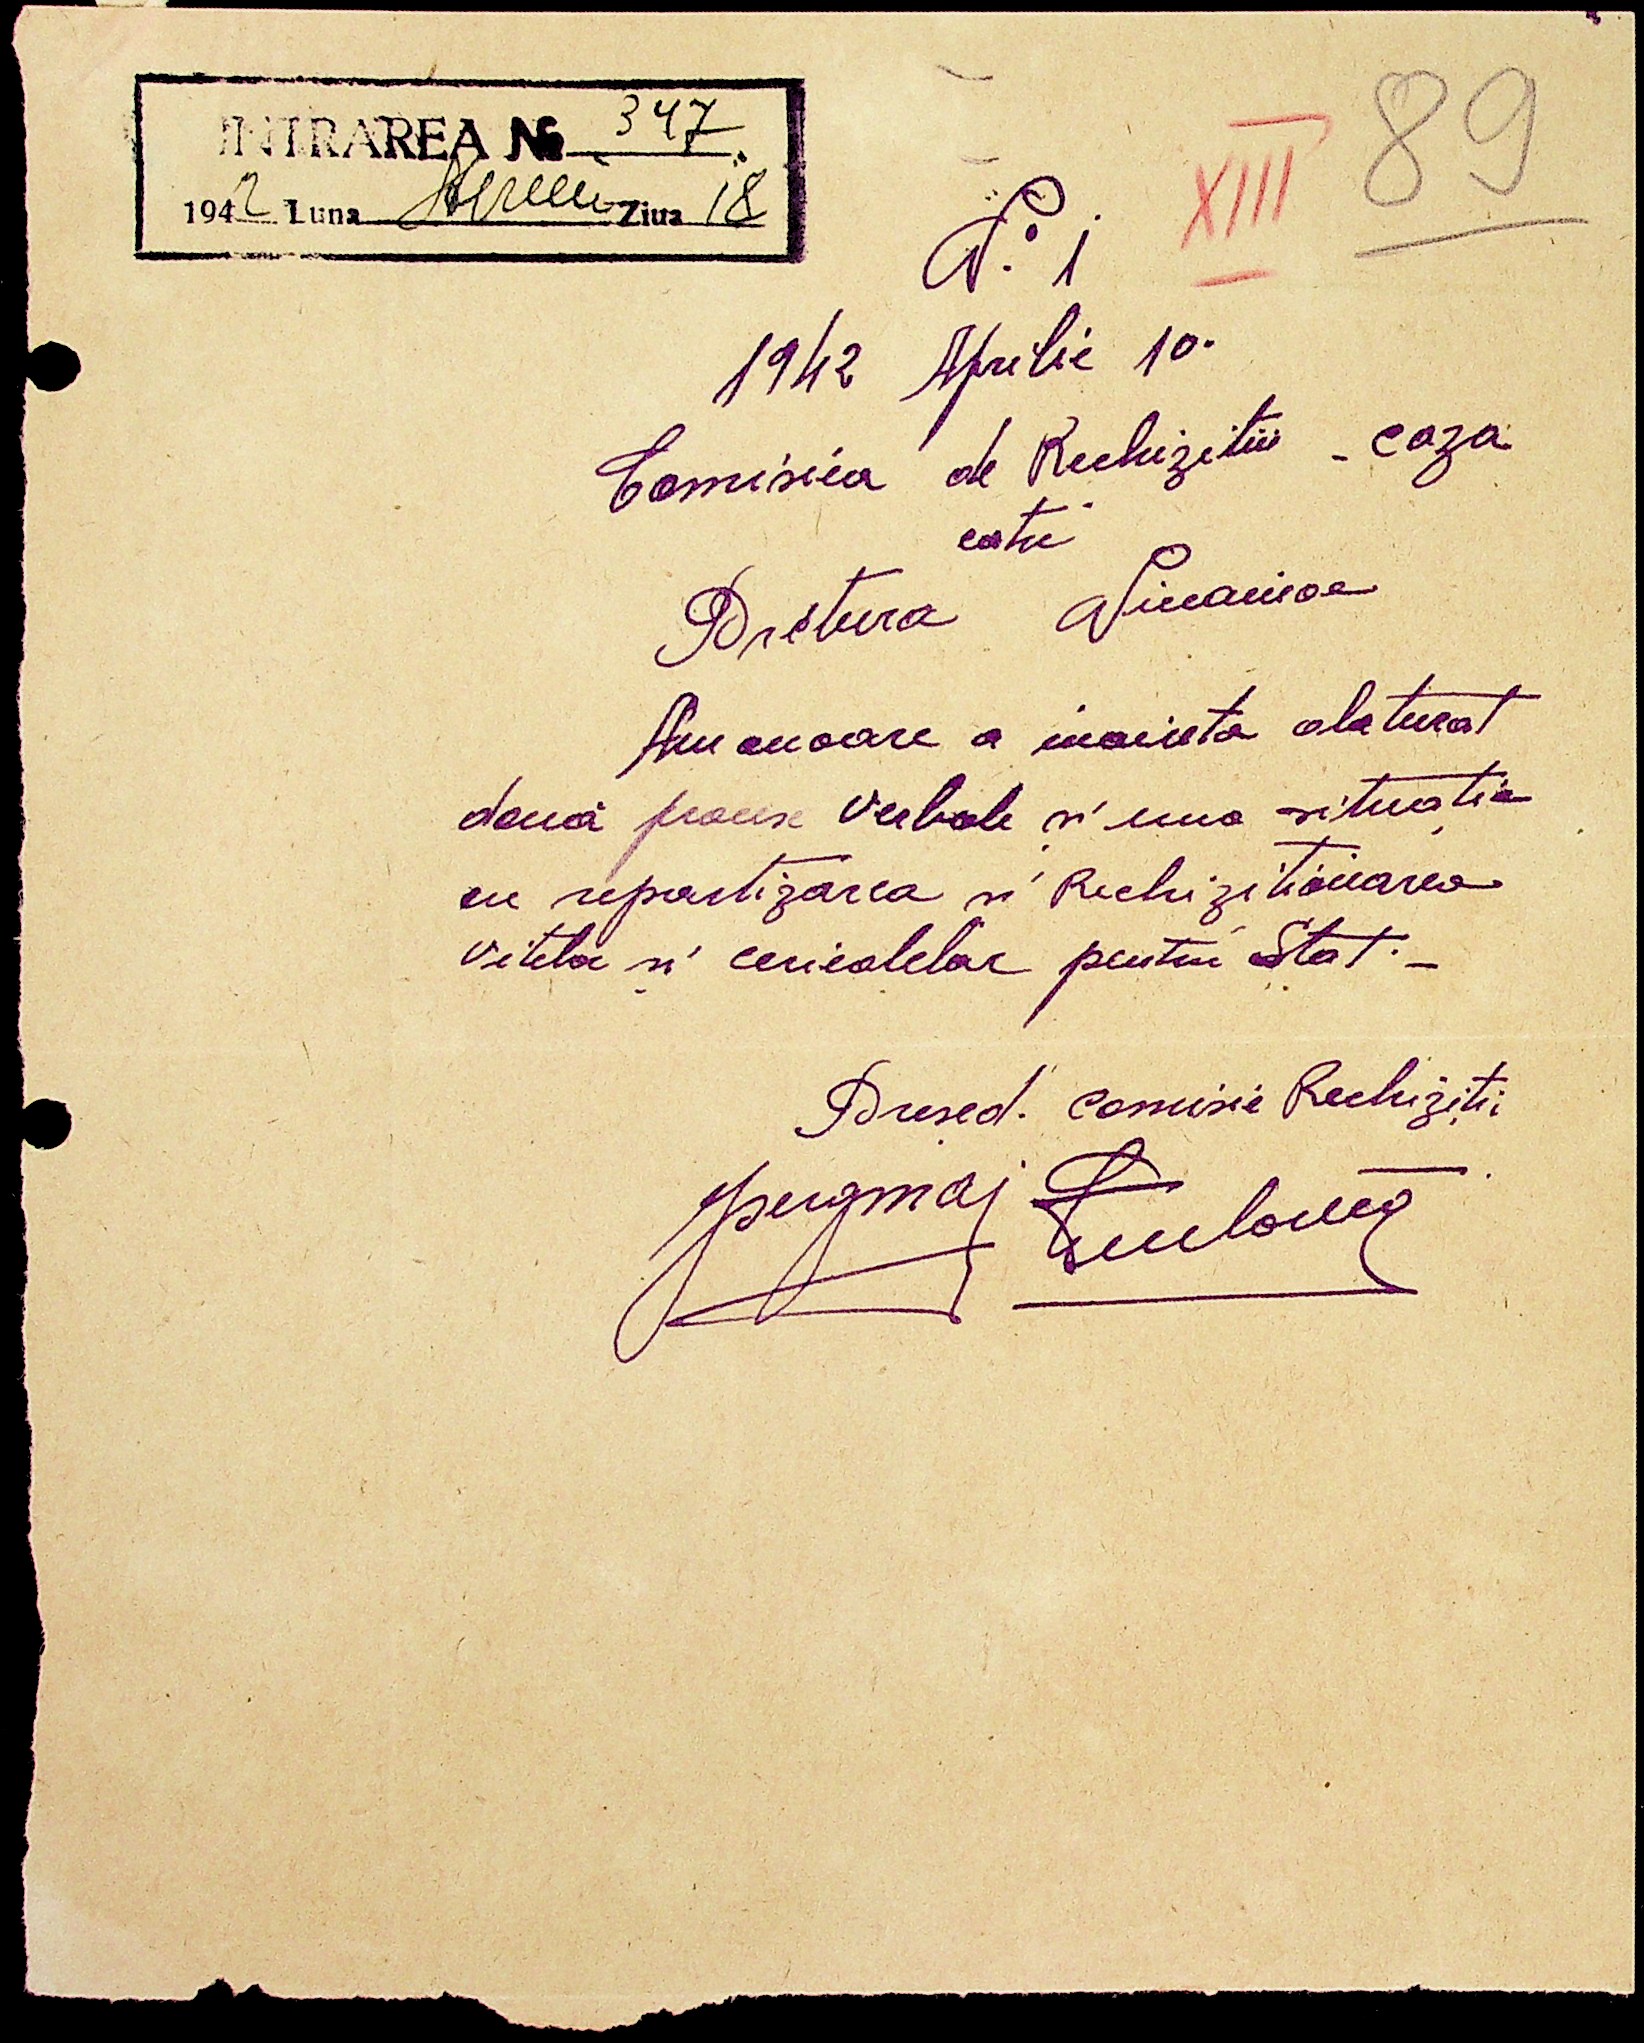 INTRAREA № 347
1942 Luna Aprilie Ziua 18
XIII 89
No. 1
1942 Aprilie 10.
Comisiea de Rechizitii - caza
catre
Pretura
Am onoare a inainta alaturat
doua procese verbale si una situatie
cu repartizarea si Rechizitionarea
vitelor si cerealelor pentru Stat. -
Presed. comisie Rechiziti